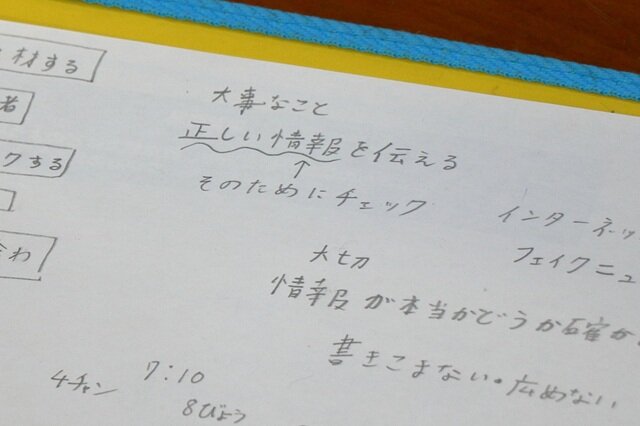 材する
者
クする
わ
大事なこと
正しい情報を伝える
↑
そのためにチェック
インターネッ
フェイクニュ
大切
情報が本当かどうか確か
書きこまない。広めない
4チャン
7:10
8びょう